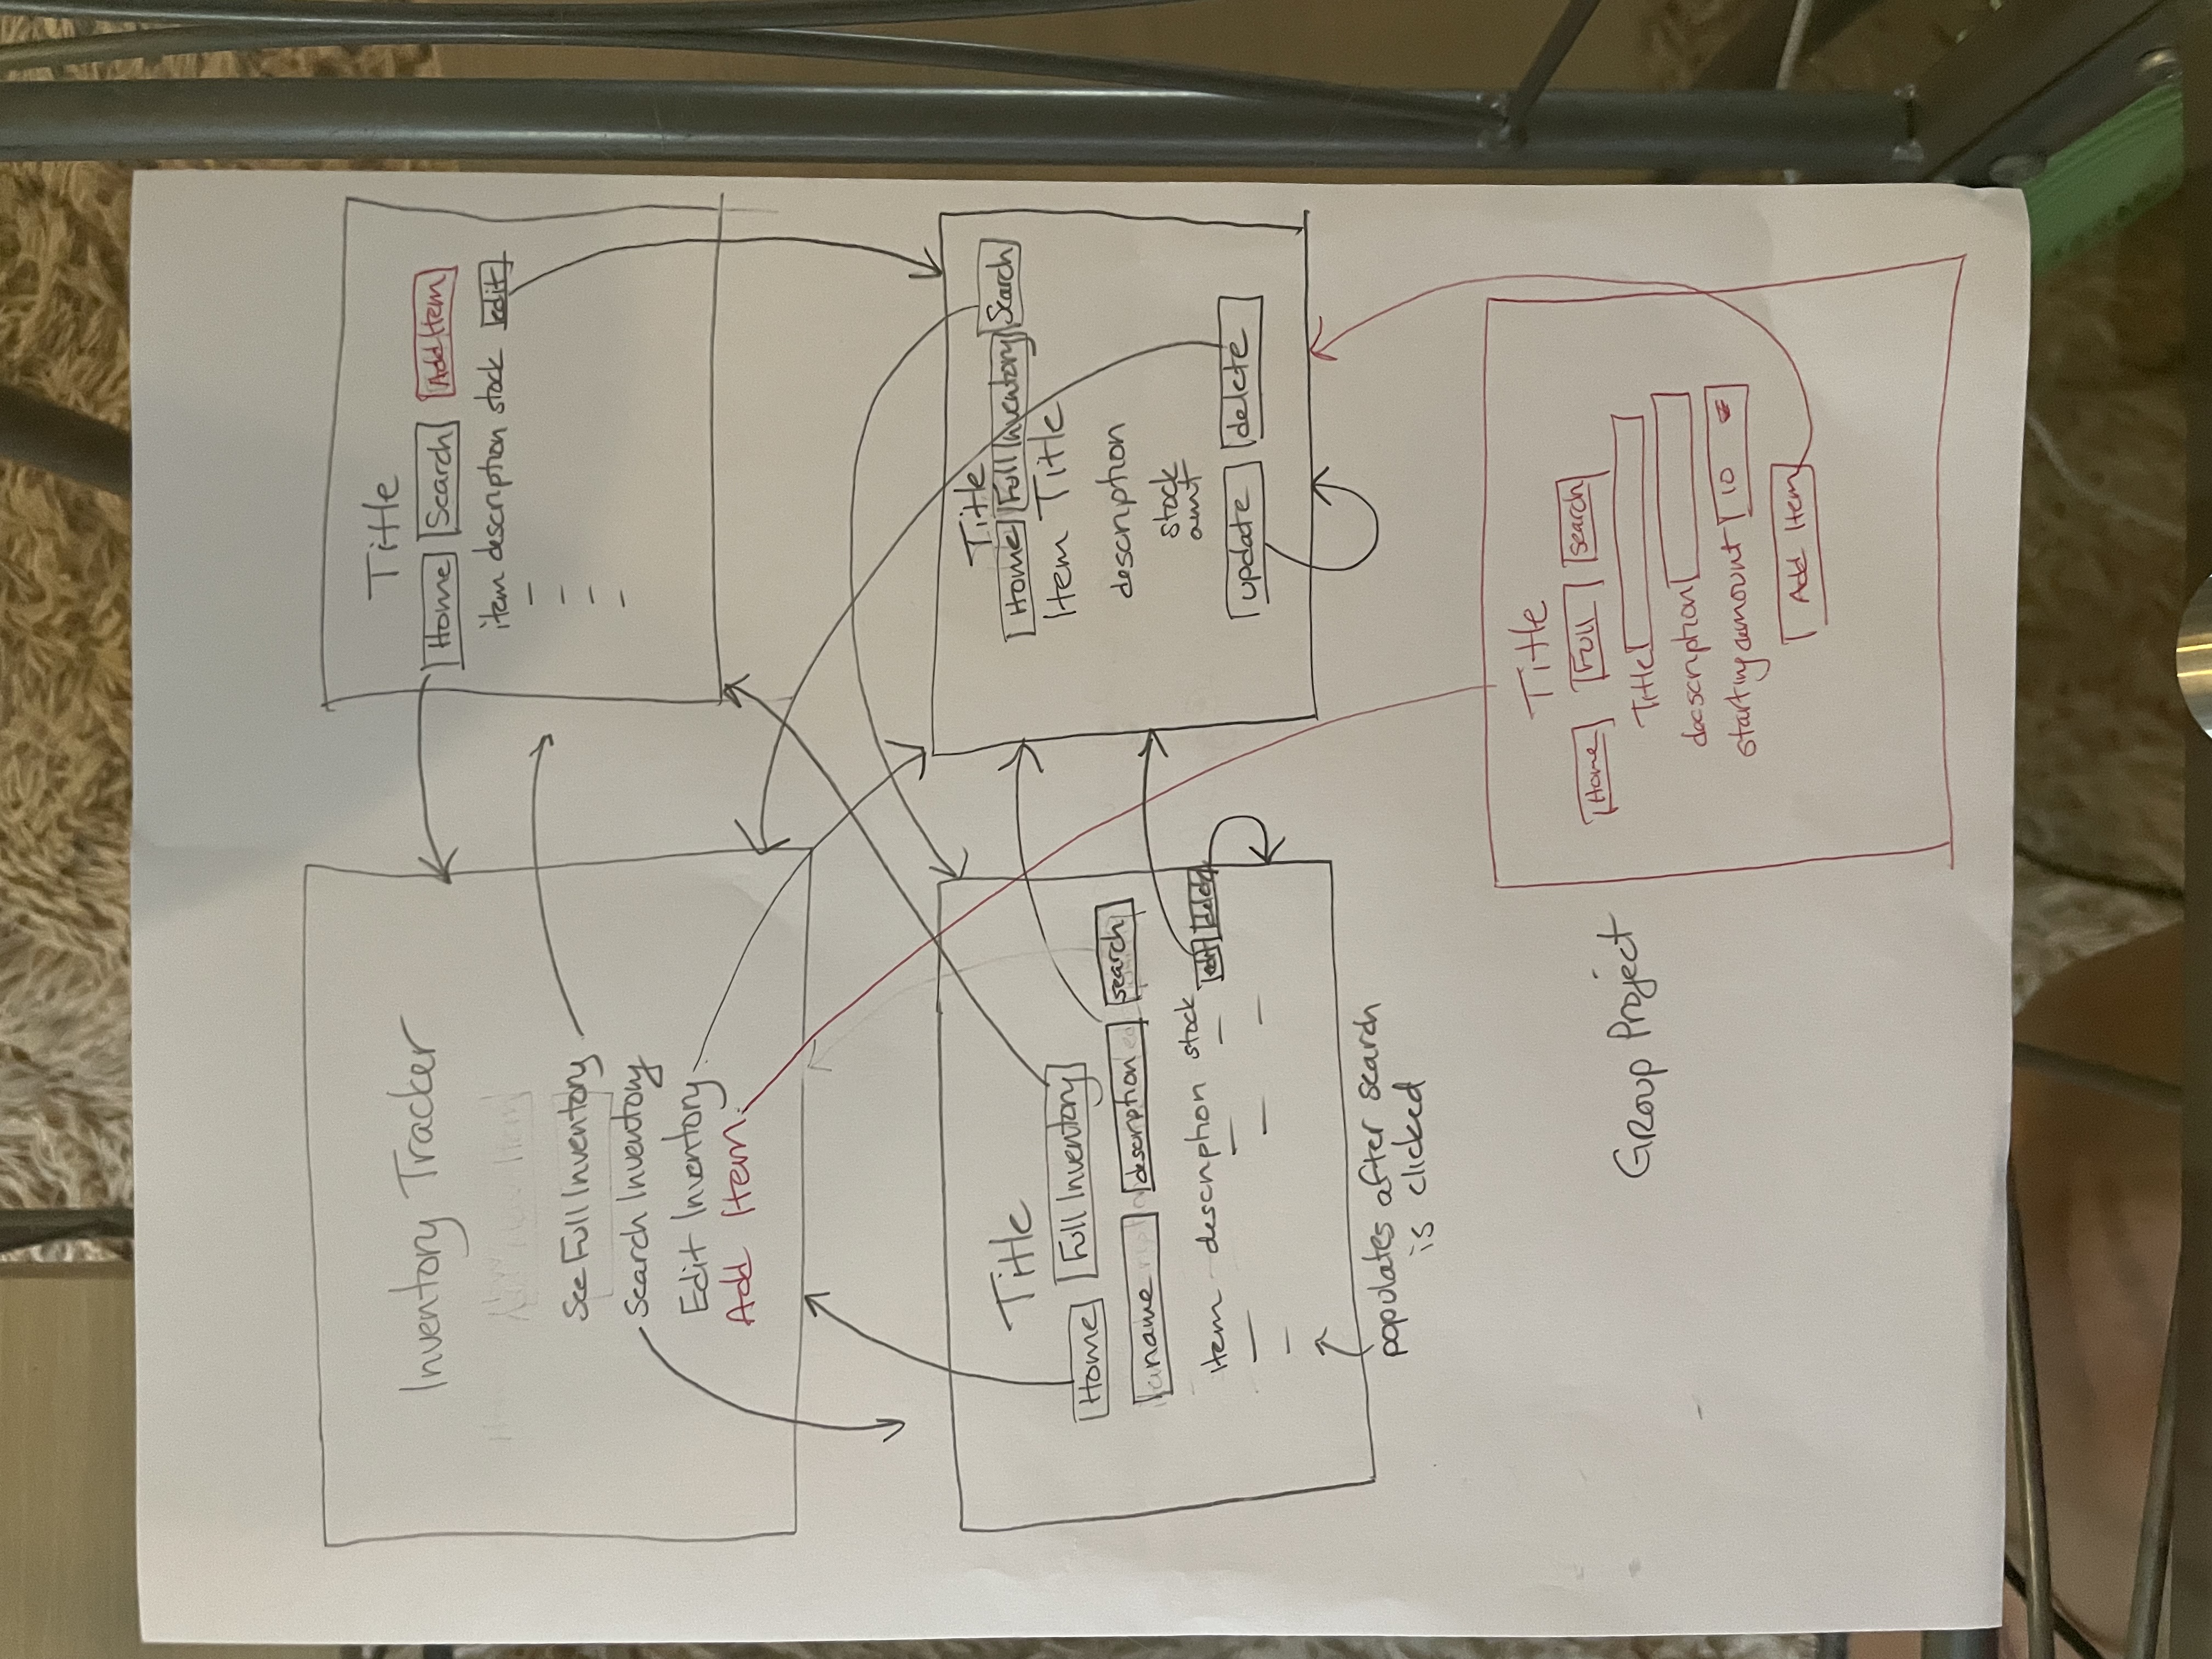 Inventory Tracker
See Full Inventory
Search Inventory
Edit Inventory
Add Item
Title
Home Search Add Item
item description stock edit
Title
Home Full Inventory
name description search
item description stock edit delete
populates after search
is clicked
Title
Home Full Inventory Search
Item Title
description
stock
amt
update delete
Group Project
Title
Home Full Search
Title
descscription
starting amount 10
Add Item